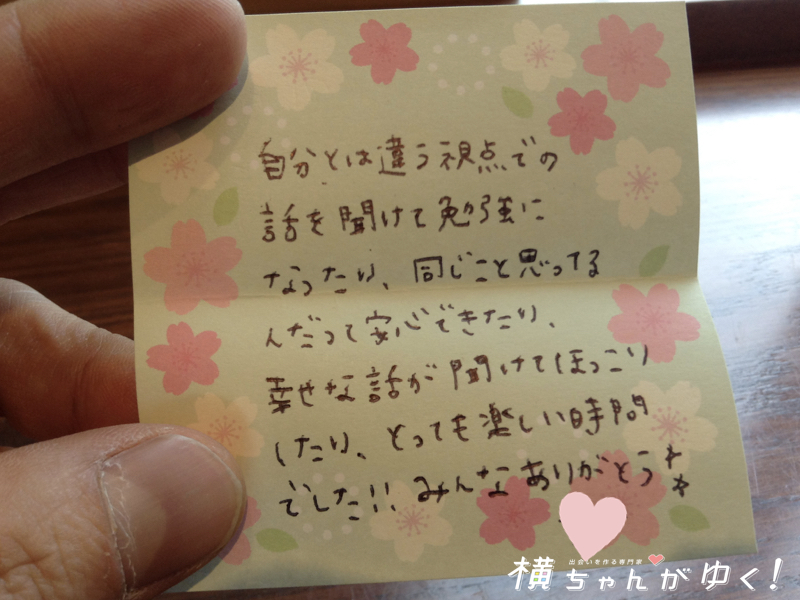 自分とは違う視点での
話を聞けて勉強に
なったり、同じこと思ってる
んだって安心できたり、
幸せな話が聞けてほっこり
したり、とっても楽しい時間
でした!! みんなありがとう
出会いを作る専門家
横ちゃんがゆく!